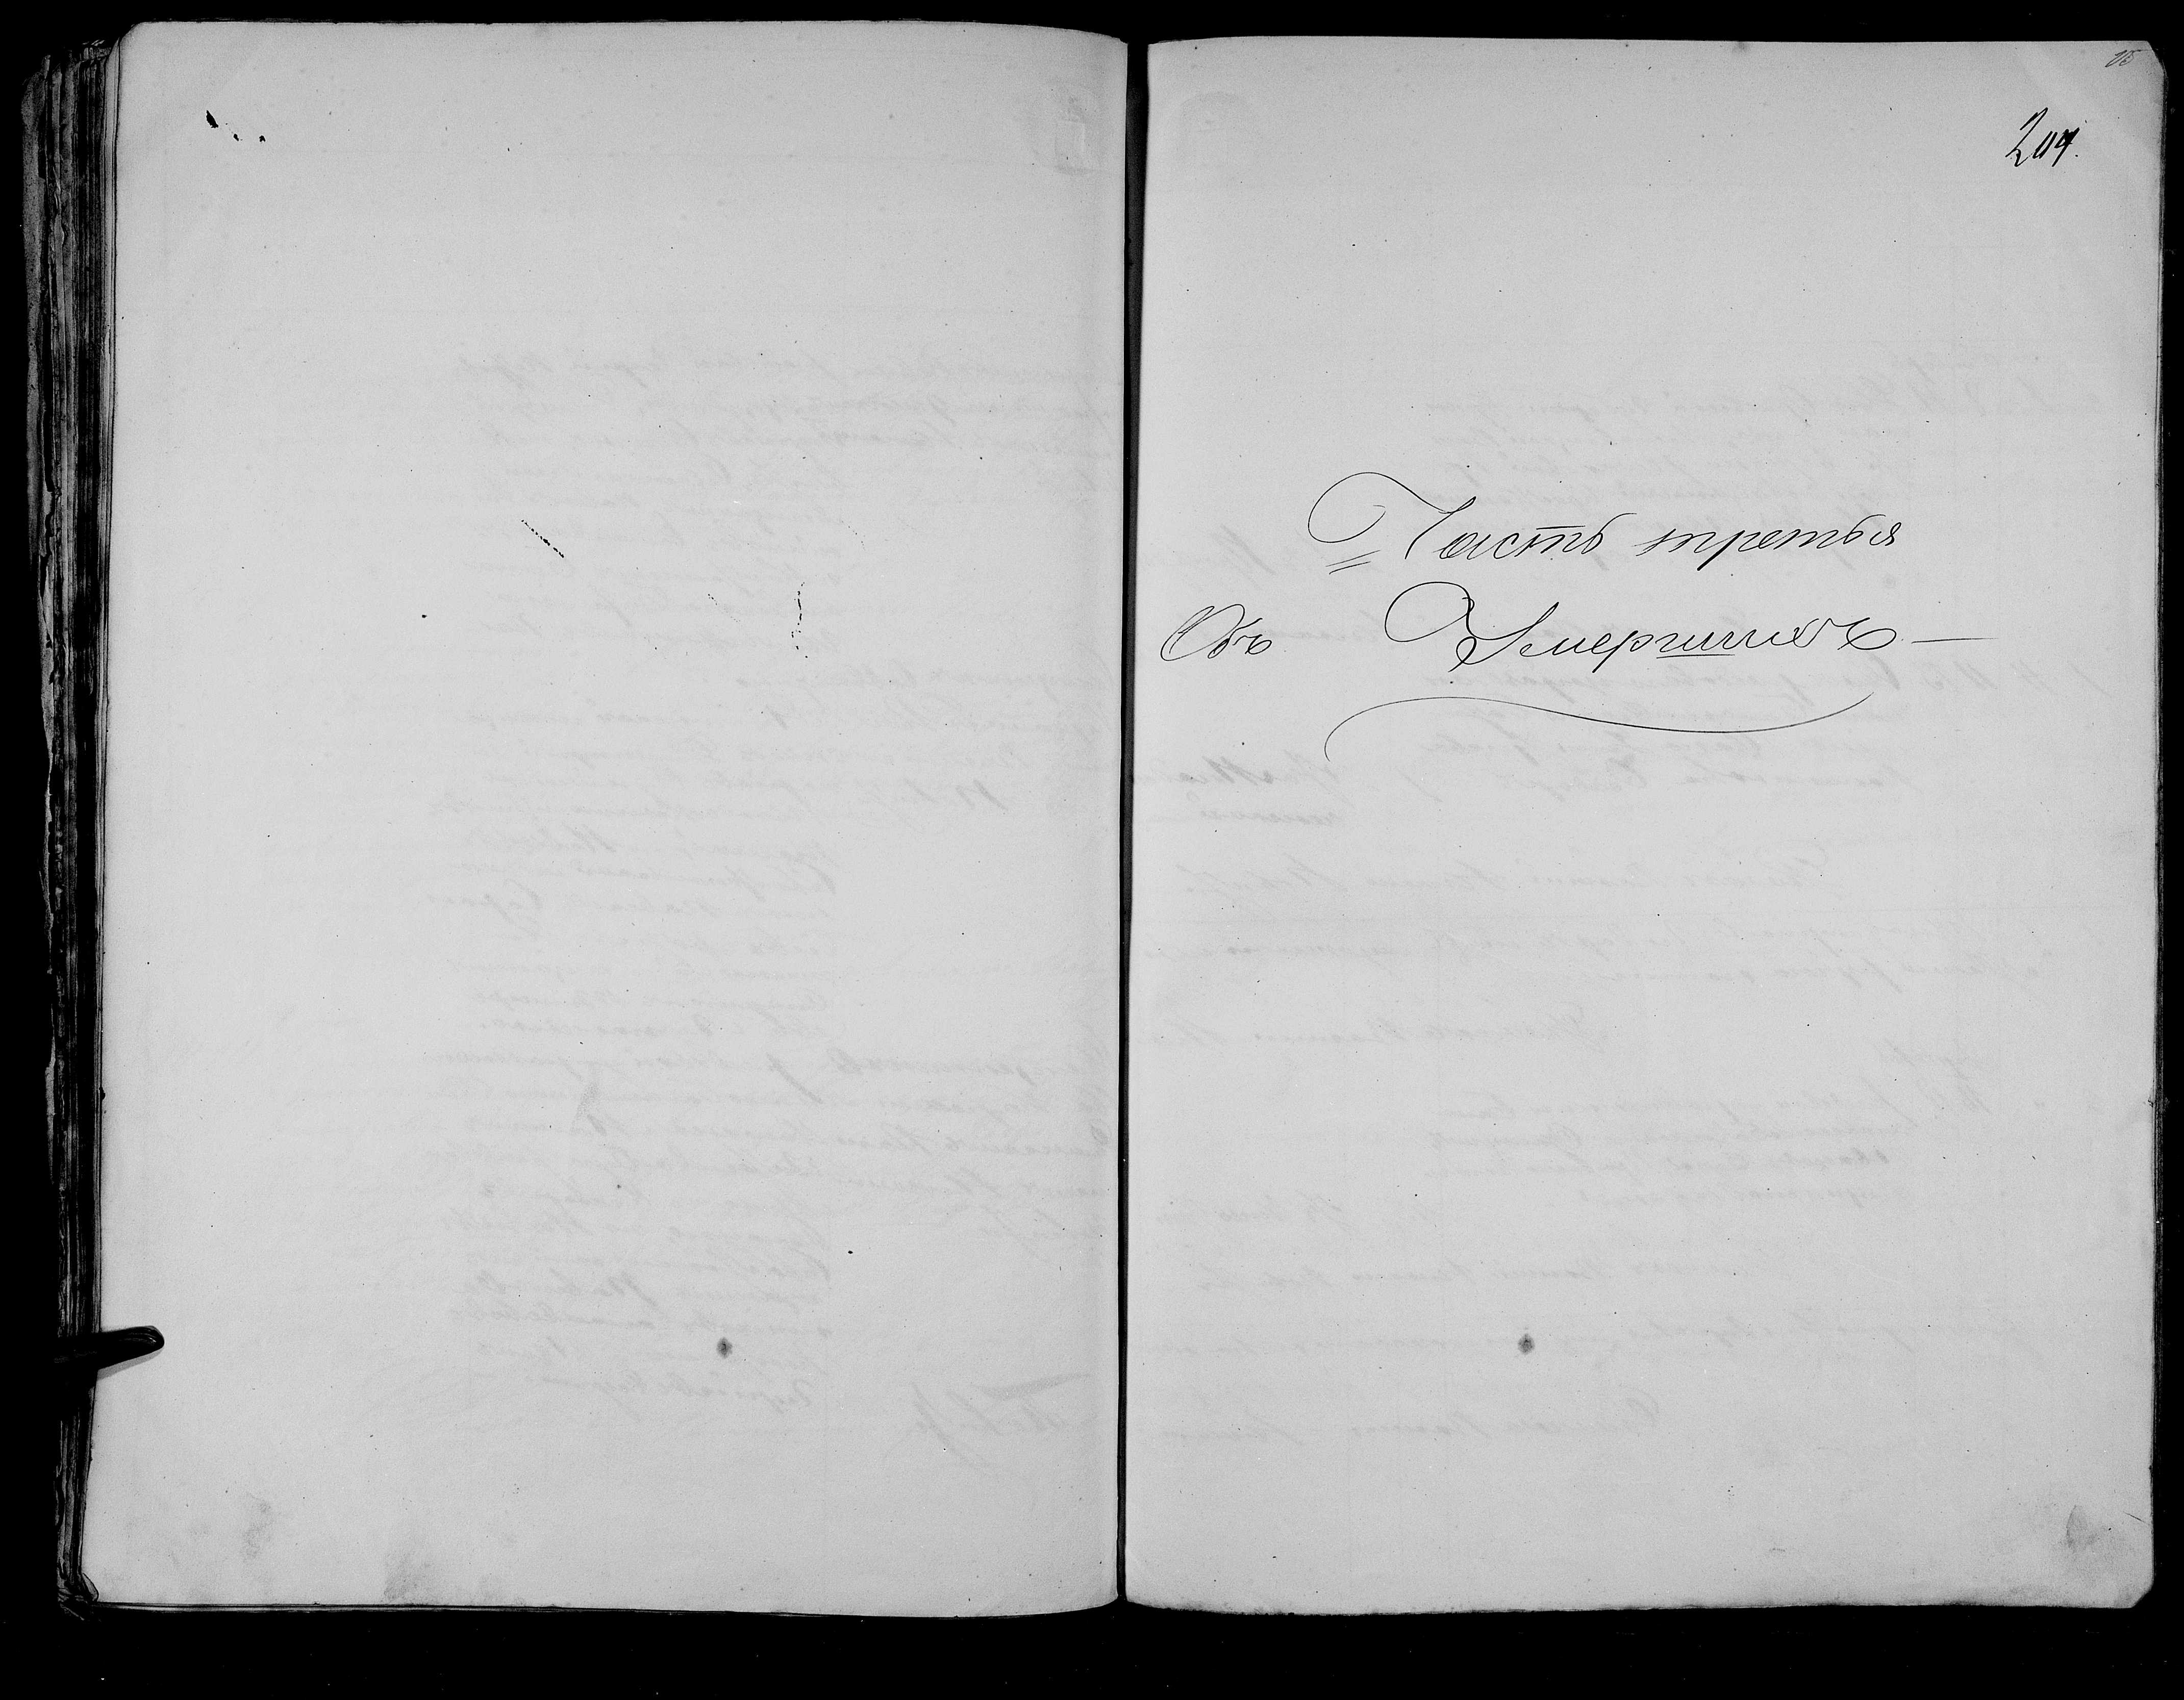 204.
Часть третья
Объ Умершихъ —